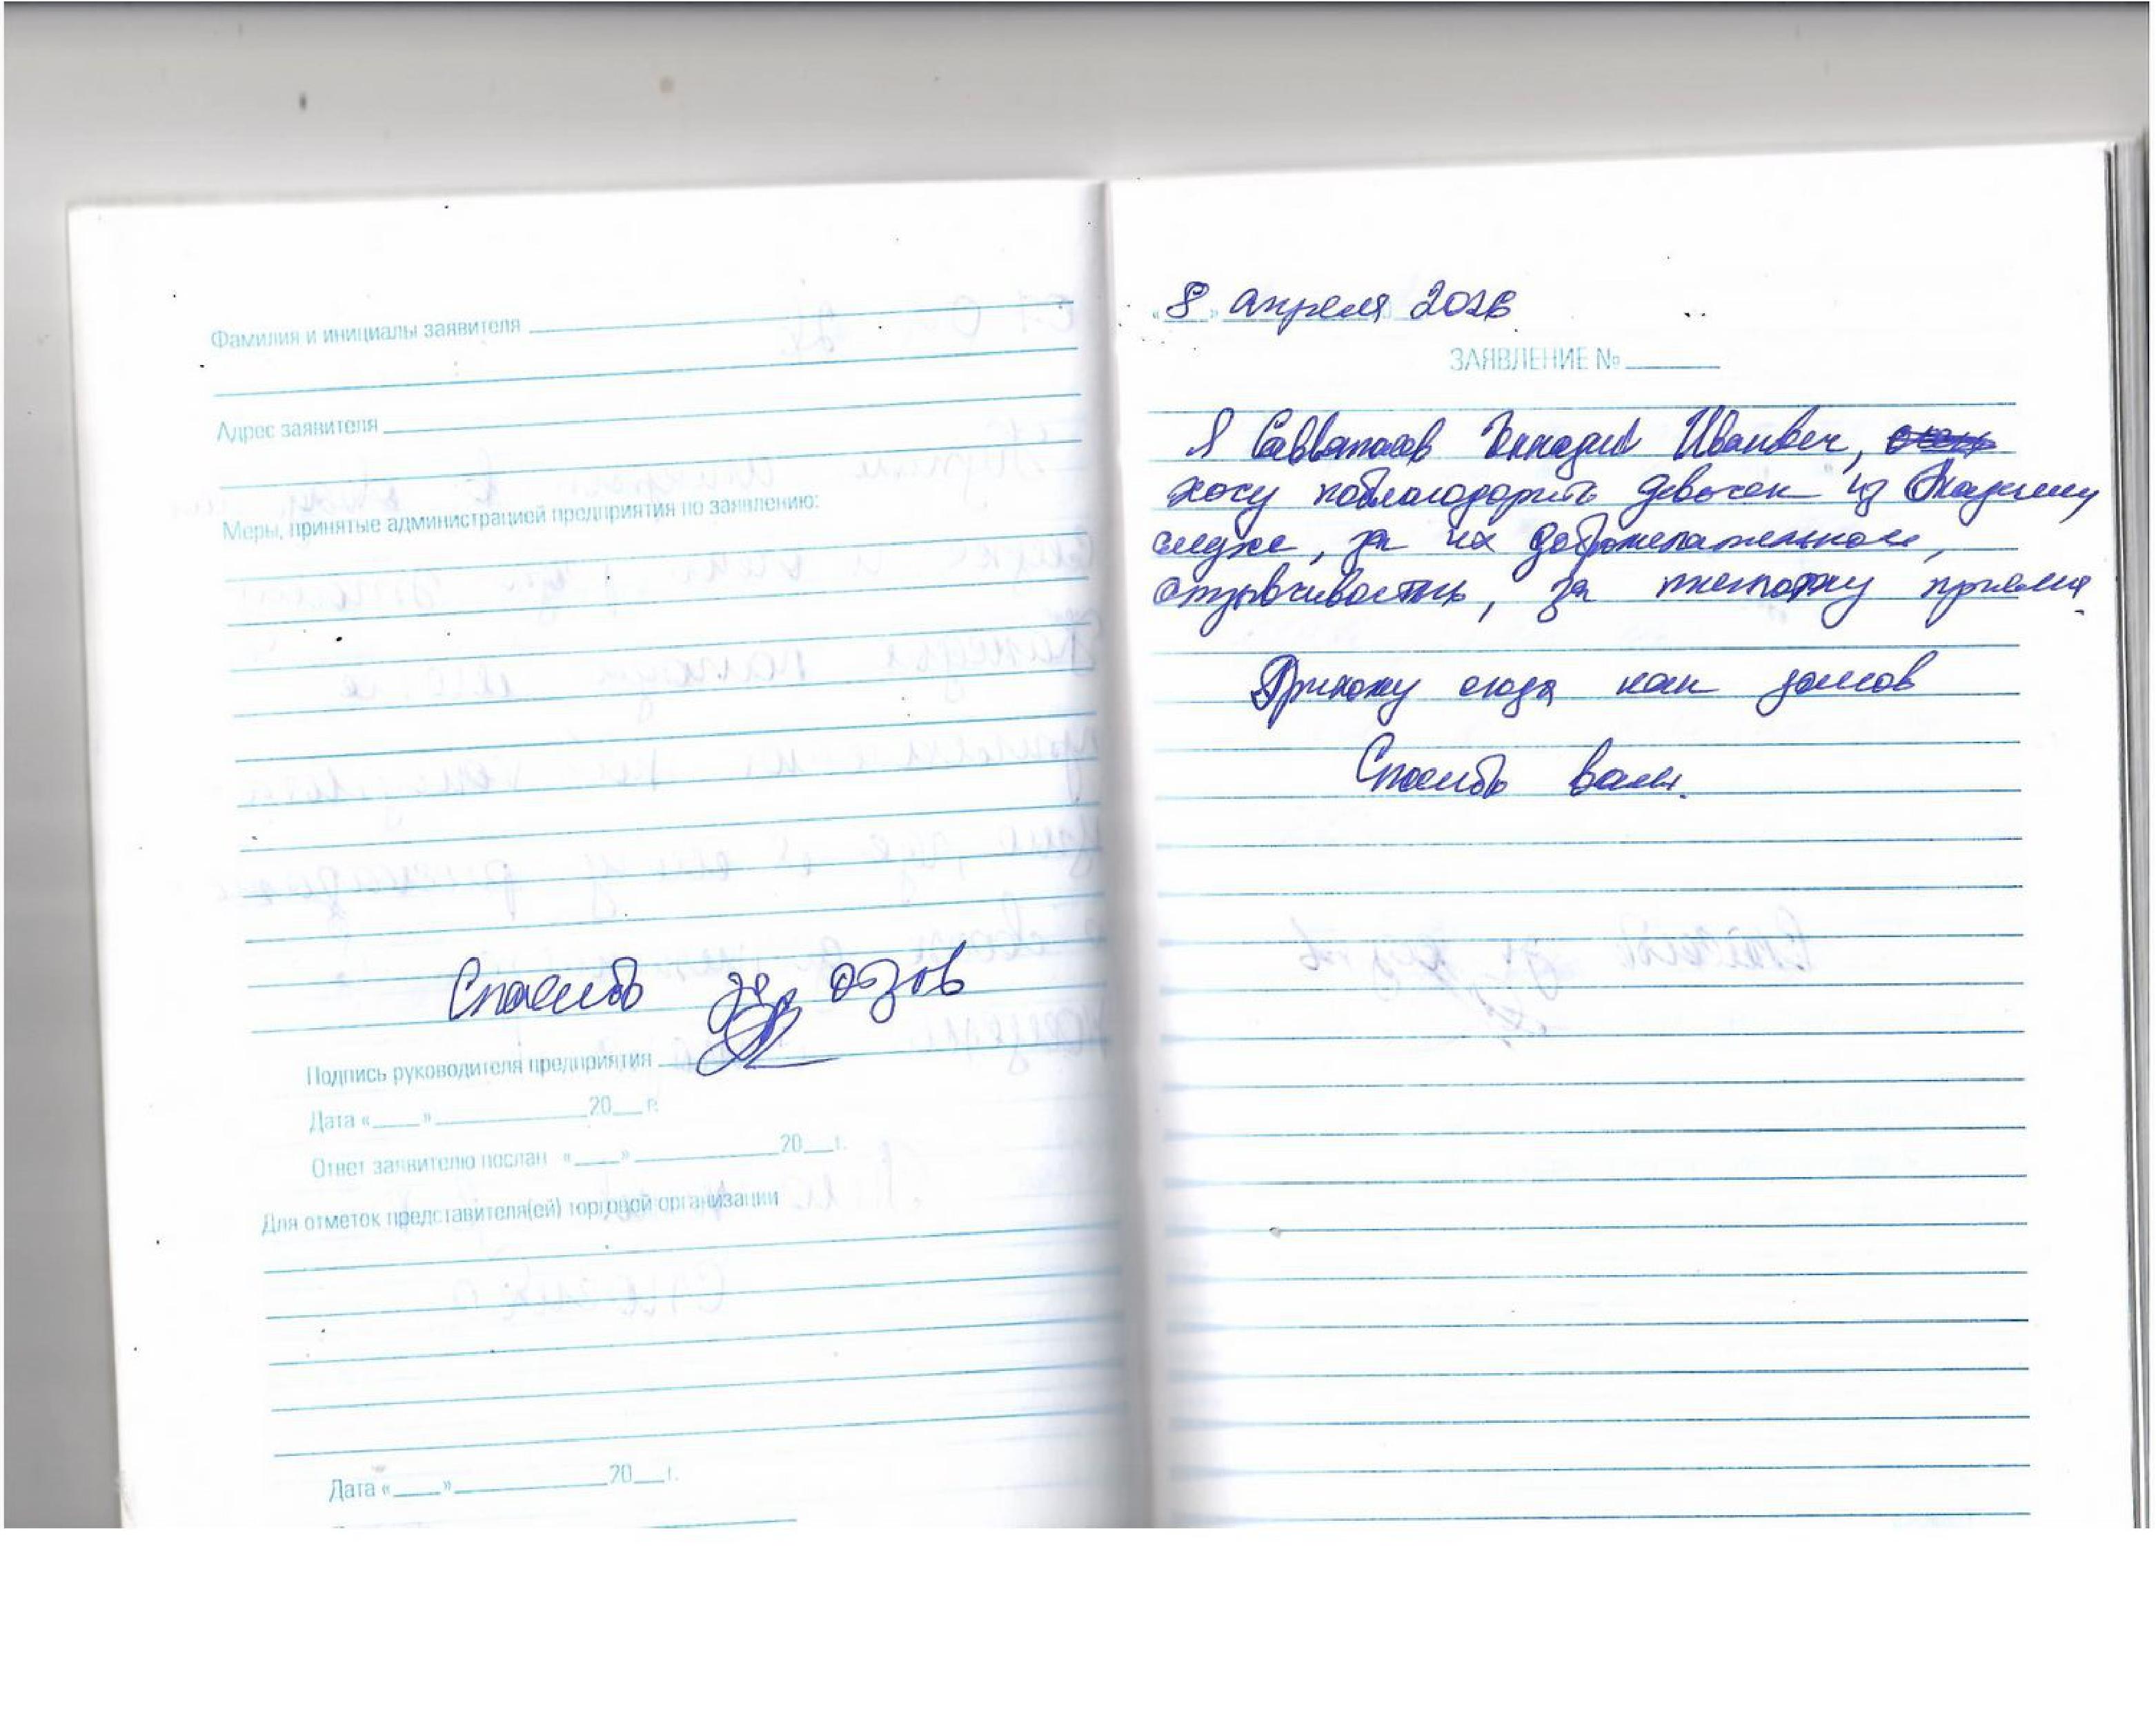 Фамилия и инициалы заявителя
Адрес заявителя
Меры, принятые администрацией предприятия по заявлению:
Спасибо за озов
Подпись руководителя предприятия
Дата «____»____________20___г.
Ответ заявителю послан «____»____________20___г.
Для отметок представителя(ей) торговой организации
Дата «____»____________20___г.
«8» апреля
ЗАЯВЛЕНИЕ №
Я Иванович,
хочу поблагодорить девочек из Академии
слуха, за их доброжелательность,
отзывчивость, за приема
Прихожу сюда как домой
Спасибо вам.